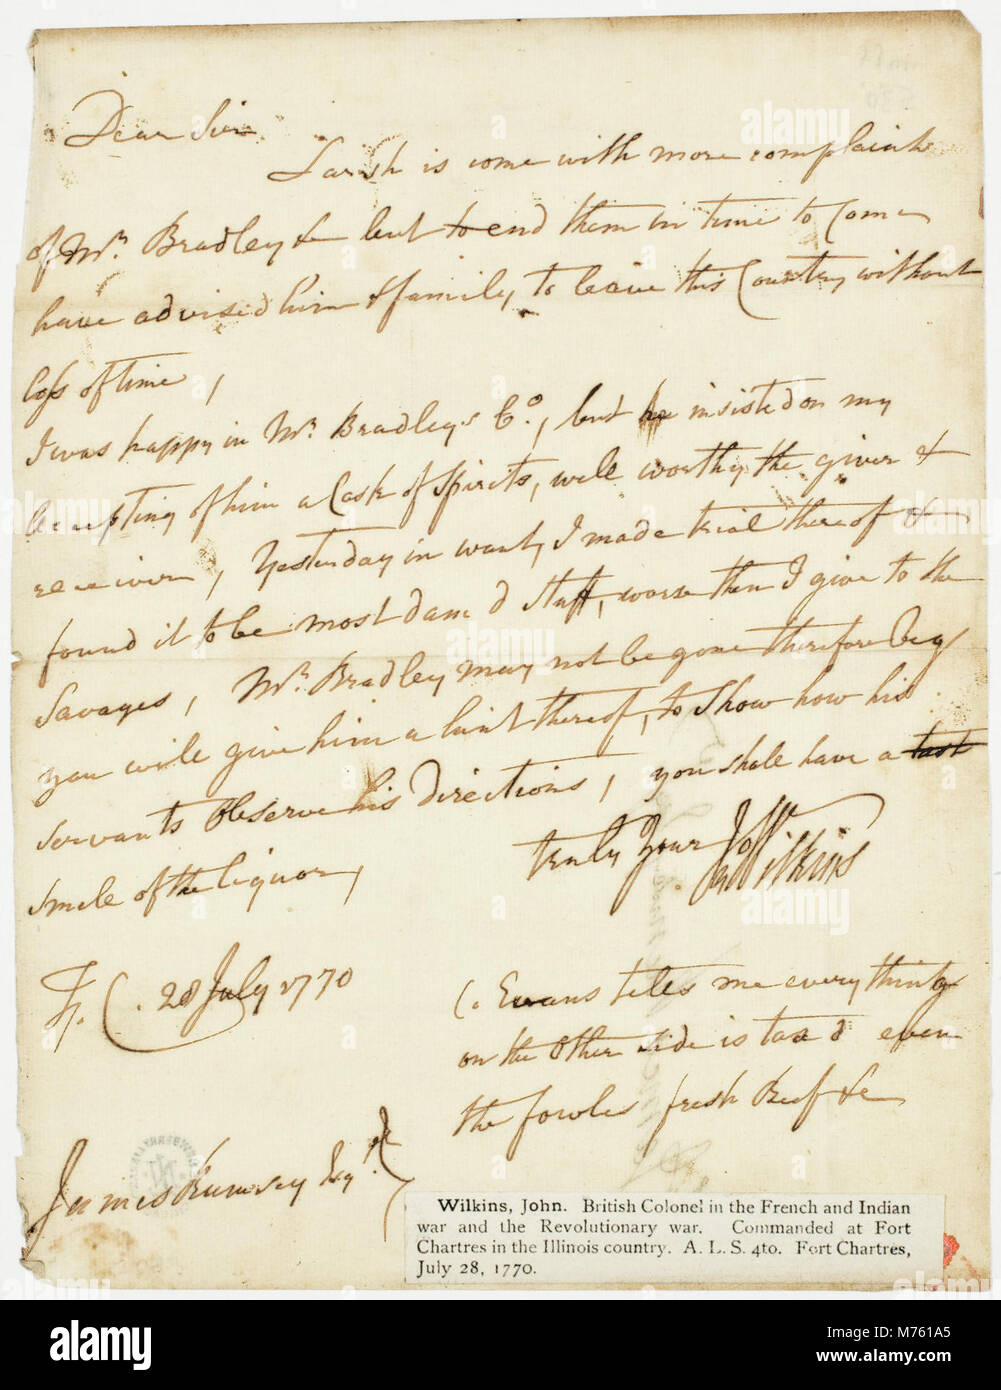 Dear Sir
Larsh is come with more complaints
of Mr. Bradley &c but to end them in time to Come
have advised him & family, to leave this Country without
loss of time,
I was happy in Mr. Bradleys Co., but he insisted on my
accepting of him a Cask of Spirits, well worthy the giver &
receiver, Yesterday in want, I made trial thereof &
found it to be most dam'd Stuff, worse then I give to the
Savages, Mr. Bradley may not be gone therefore beg
you will give him a hint thereof, to Show how his
servants Observe his Directions, you shall have a tast
Smell of the liquor,
truly Your
JnoWilkins
Ft. C. 28 July 1770
C. Evans tells me everything
on the Other side is taxd even
the fowles fresh Beef &c
James Rumsey Esqr.
Wilkins, John. British Colonel in the French and Indian
war and the Revolutionary war. Commanded at Fort
Chartres in the Illinois country. A. L. S. 4to. Fort Chartres,
July 28, 1770.
alamy
www.alamy.com
Image ID: M761A5